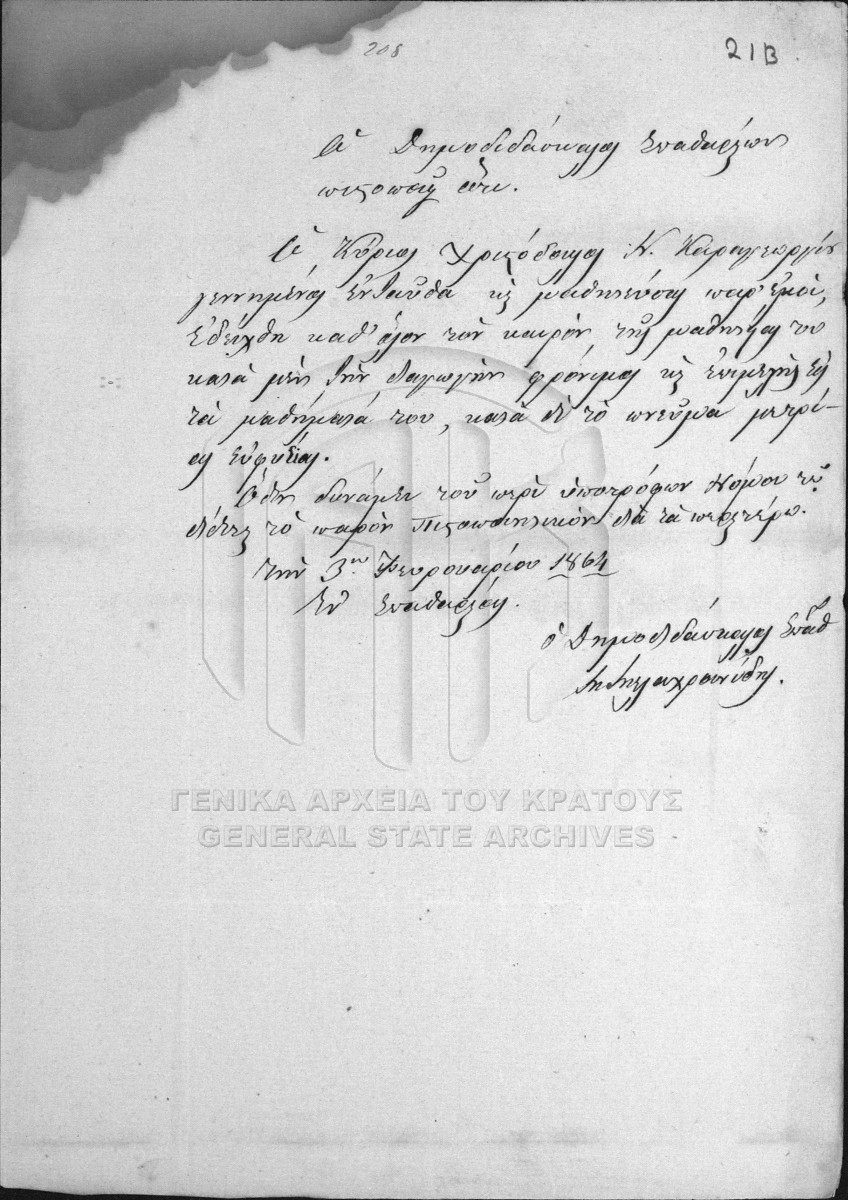 208
21B
Ὁ Δημοδιδάσκαλος Σπαθαρέων
πιστοποιεῖ ὅτι.
Ὁ Κύριος Χριστόδουλος Ν. Καραγεωργίου
γεννημένος ἐνταῦθα καὶ μαθητεύσας παρ' ἐμοί,
ἐδείχθη καθ' ὅλον τὸν καιρὸν τῆς μαθητείας του
κατὰ μὲν τὴν διαγωγὴν φρόνιμος καὶ ἐπιμελὴς εἰς
τὰ μαθήματά του, κατὰ δὲ τὸ πνεῦμα μετρί-
ας εὐφυΐας.
Ὅθεν δυνάμει τοῦ περὶ ὑποτρόφων Νόμου τῷ
δίδεται τὸ παρὸν Πιστοποιητικὸν διὰ τὰ περαιτέρω.
τὴν 3ην Φευρουαρίου 1864
Ἐν Σπαθαρέοις.
ὁ Δημοδιδάσκαλος Σπαθ
ΓΕΝΙΚΑ ΑΡΧΕΙΑ ΤΟΥ ΚΡΑΤΟΥΣ
GENERAL STATE ARCHIVES